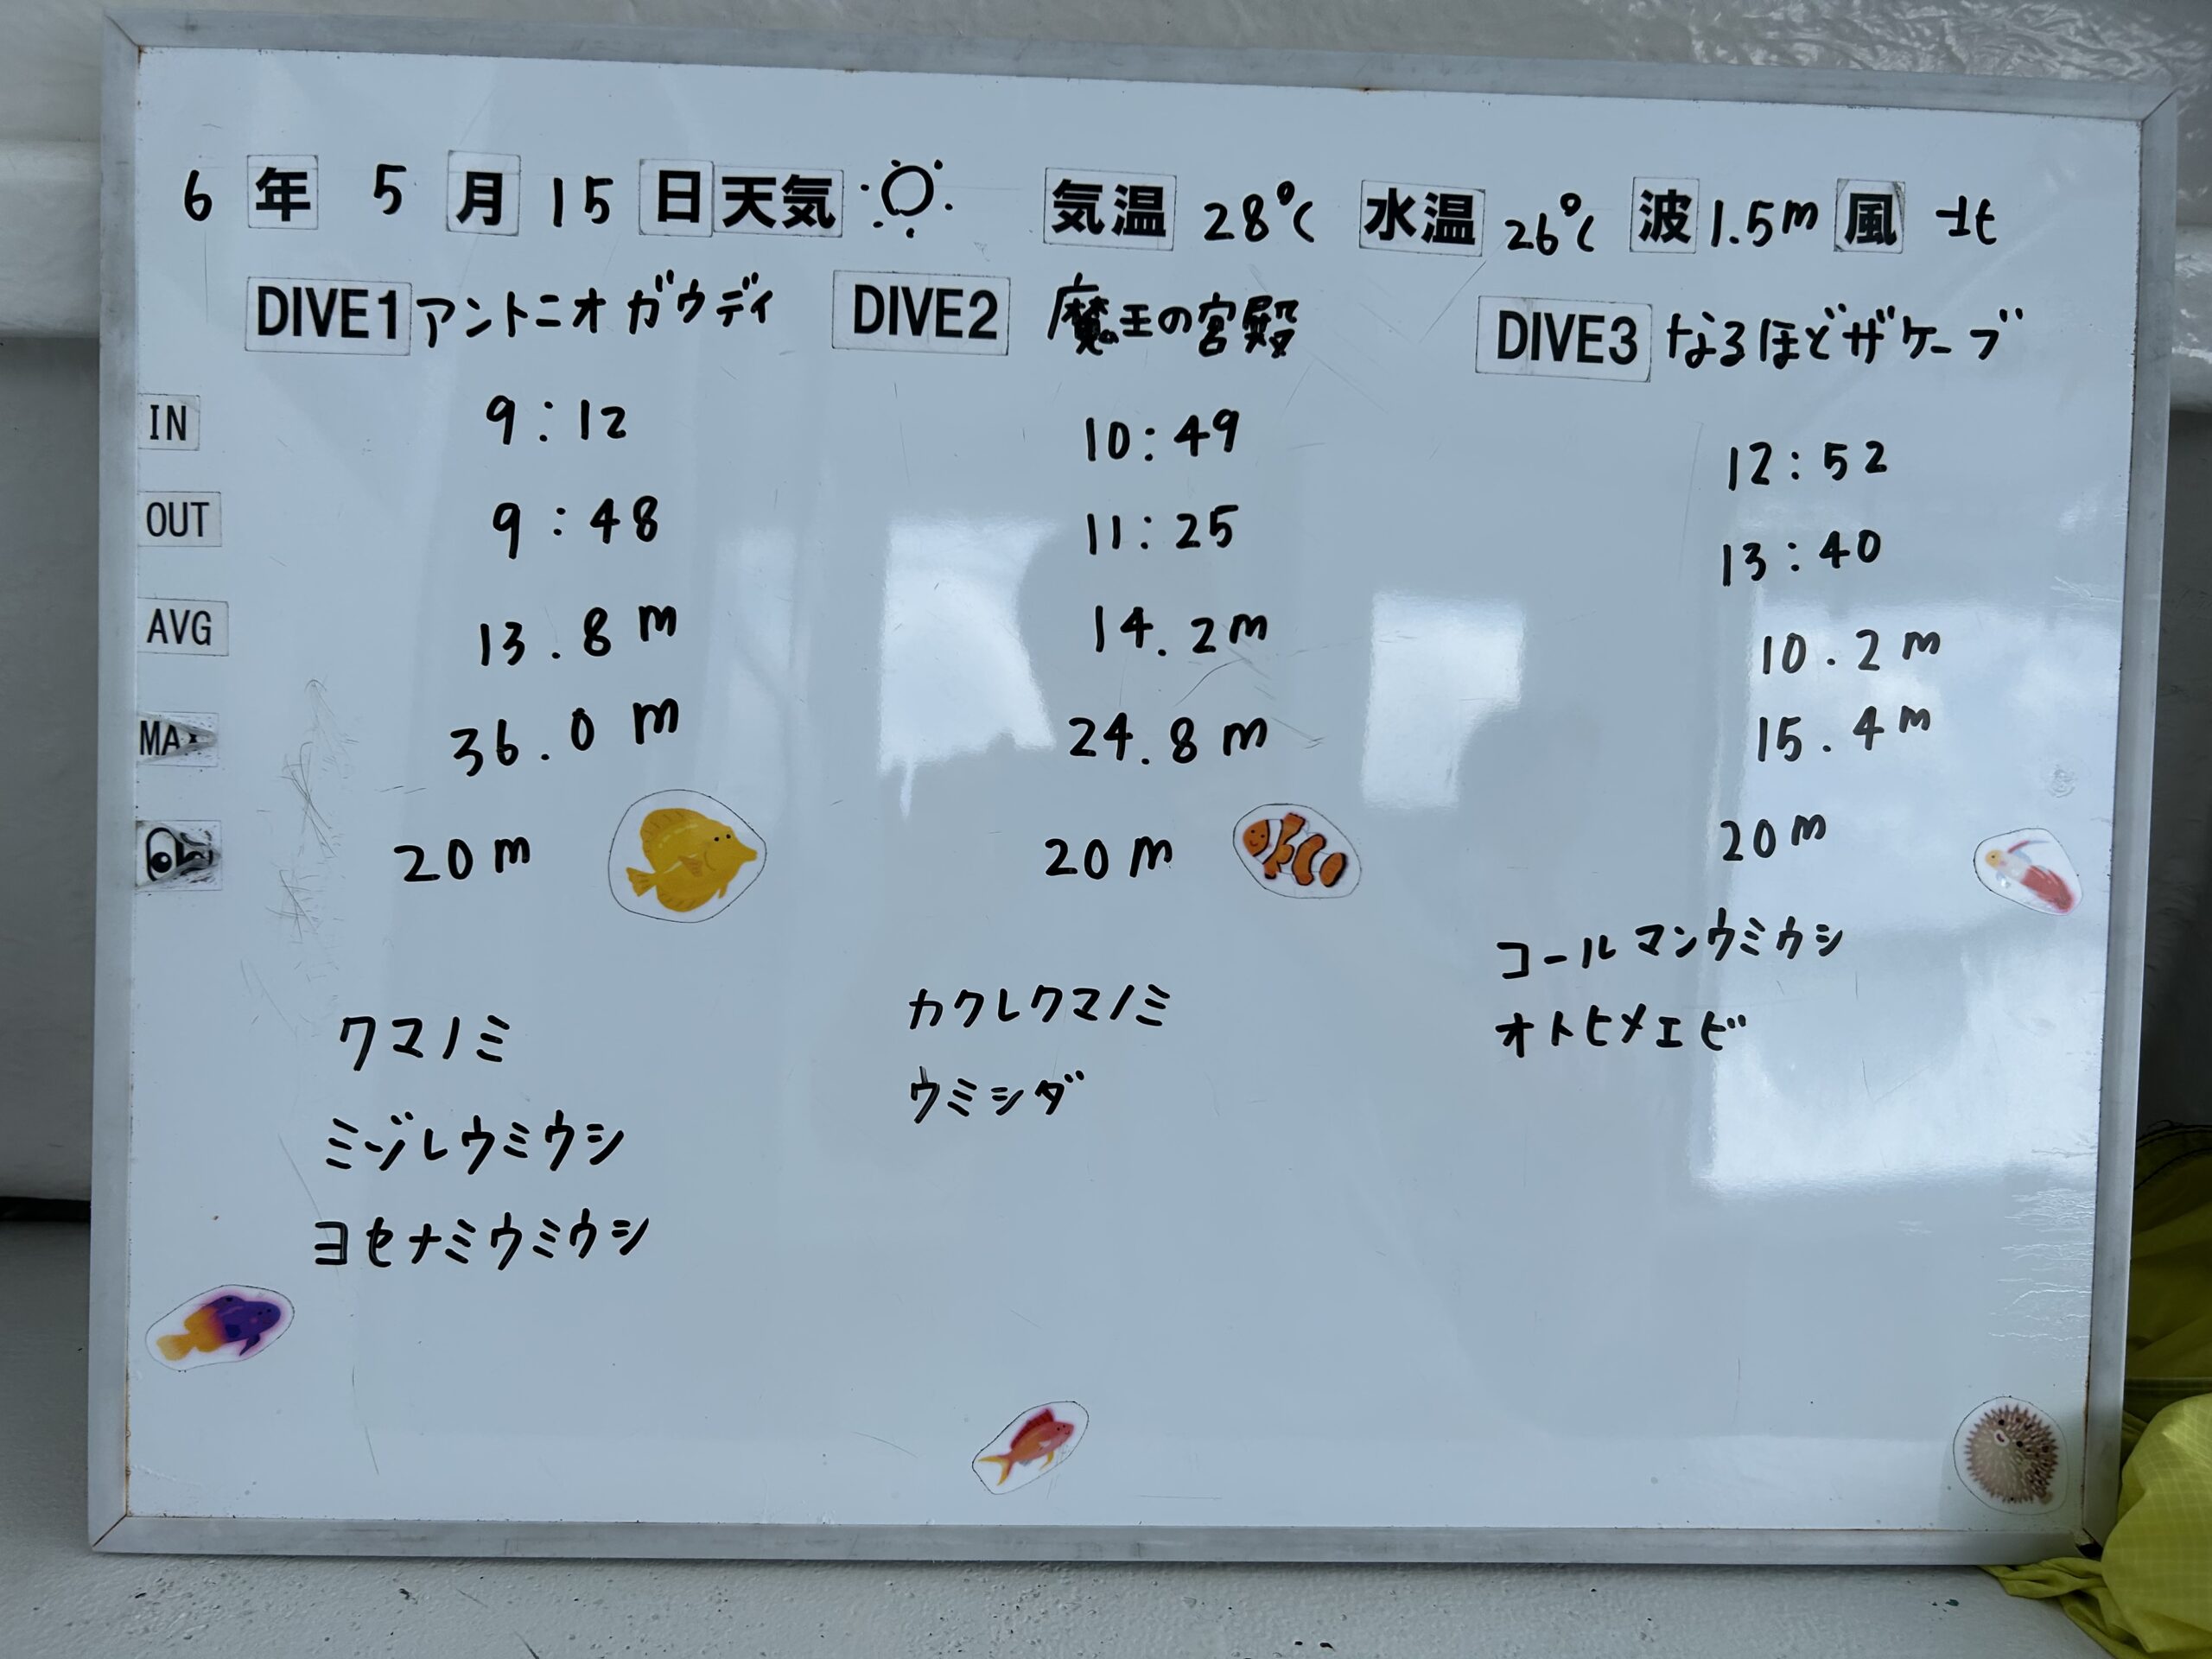 6 年 5 月 15 日 天気 気温 28℃ 水温 26℃ 波 1.5m 風 北
DIVE1 アントニオガウディ DIVE2 魔王の宮殿 DIVE3 なるほどザケーブ
IN 9:12 10:49 12:52
OUT 9:48 11:25 13:40
AVG 13.8m 14.2m 10.2m
MAX 36.0m 24.8m 15.4m
20m 20m 20m
クマノミ カクレクマノミ コールマンウミウシ
ミゾレウミウシ ウミシダ オトヒメエビ
ヨセナミウミウシ